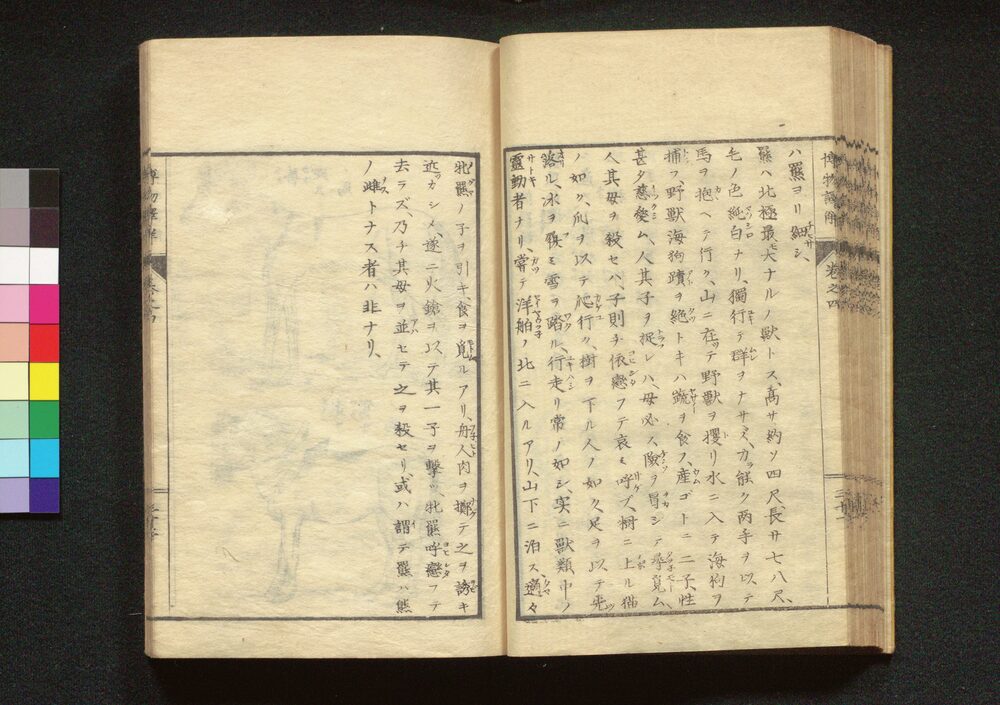 ハ羆ヨリ細シ、
熊ハ北極最モ大ナルノ獣トス、高サ約ソ四尺、長サ七八尺、
毛ノ色純白ナリ、獨行テ群ヲナサズ、力ヲ能ク両手ヲ以テ
馬ヲ抱ヘテ行ク、山ニ在テ野獣ヲ攫リ水ニ入テ海狗ヲ
捕フ野獣海狗蹟ヲ絶トキハ蔬ヲ食フ、産ゴトニ二子、性
甚タ慈愛ム、人其子ヲ捉レハ、母必ス険ヲ冒シテ尋覓ム、
人其母ヲ殺セハ、子則チ依戀フテ哀ミ呼ブ、樹ニ上ル猫
ノ如ク、爪ヲ以テ爬行ク、樹ヲ下ル人ノ如ク、足ヲ以テ先ツ
踏ル、水ヲ履ミ雪ヲ踏ル、行走リ常ノ如シ、実ニ獣類中ノ
靈動者ナリ、嘗テ洋舶ノ北ニ入ルアリ、山下ニ泊ス適々
牝羆ノ子ヲ引キ、食ヲ覓ルアリ、舟人肉ヲ擲テ之ヲ誘キ
近カシメ、遂ニ火鎗ヲ以テ其一子ヲ撃ツ、牝羆呼戀フテ
去ラズ、乃チ其母ヲ並セテ之ヲ殺セリ、或ハ謂テ羆ハ熊
ノ雌トナス者ハ非ナリ、
卷之四